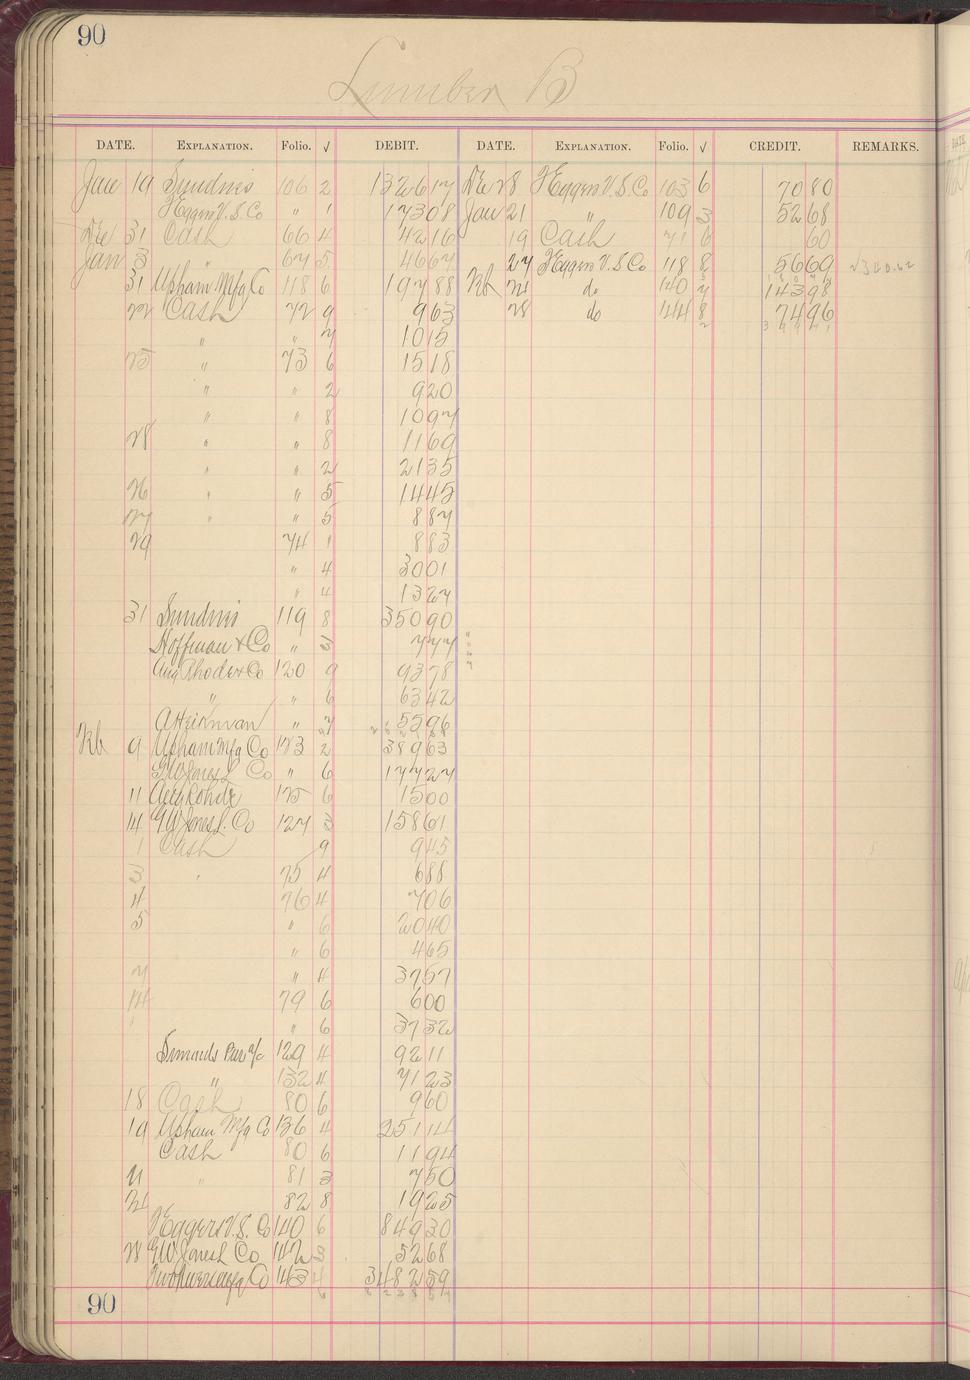 90
Lumber B
DATE. EXPLANATION. Folio. √ DEBIT. DATE. EXPLANATION. Folio. √ CREDIT. REMARKS.
Jan 19 Sundries 106 2 1326 17 Dec 28 F Eggers V. S. Co 103 6 70 80
F Eggers V. S. Co " 1 173 08 Jan 21 " 109 3 52 68
Dec 31 Cash 66 4 42 16 19 Cash 71 6 60
Jan 3 " 67 5 46 67 27 F Eggers V. S. Co 118 8 56 69
31 Upham Mfg Co 118 6 197 88 Feb 21 do 140 7 143 98
22 Cash 72 9 9 63 28 do 144 8 74 96
" " 7 10 15
25 " 73 6 15 18
" " 2 9 20
" " 8 10 97
28 " " 8 11 69
" " 2 21 35
26 " " 5 14 45
27 " " 5 8 87
29 74 1 8 83
" 4 30 01
" 4 13 27
31 Sundries 119 8 350 90
Hoffman & Co " 3 7 77
Aug Rhode & Co 120 9 93 78
" " 6 63 42
" 7 55 96
Feb 9 Upham Mfg Co 123 2 389 63
G W Jones L Co " 6 177 27
11 Aug Rohde 125 6 15 00
14 G W Jones L. Co 127 3 158 61
1 Cash 9 9 45
3 " 75 4 6 88
4 76 4 7 06
5 " 6 20 40
" 6 4 65
7 " 4 37 57
14 79 6 6 00
" " 6 37 32
129 4 92 11
" 132 4 71 23
18 Cash 80 6 9 60
19 Upham Mfg Co 136 4 251 14
Cash 80 6 11 94
21 " 81 3 7 50
24 82 8 19 25
F Eggers V. S. Co 140 6 849 30
28 G W Jones L Co 142 3 52 68
Two Rivers Mfg Co 143 4 3482 59
90